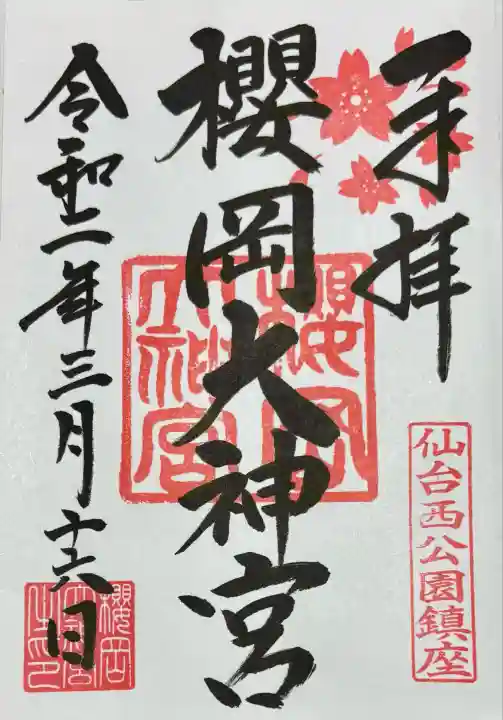 奉拝
櫻岡大神宮
櫻岡大神宮
仙台西公園鎮座
令和二年三月十六日